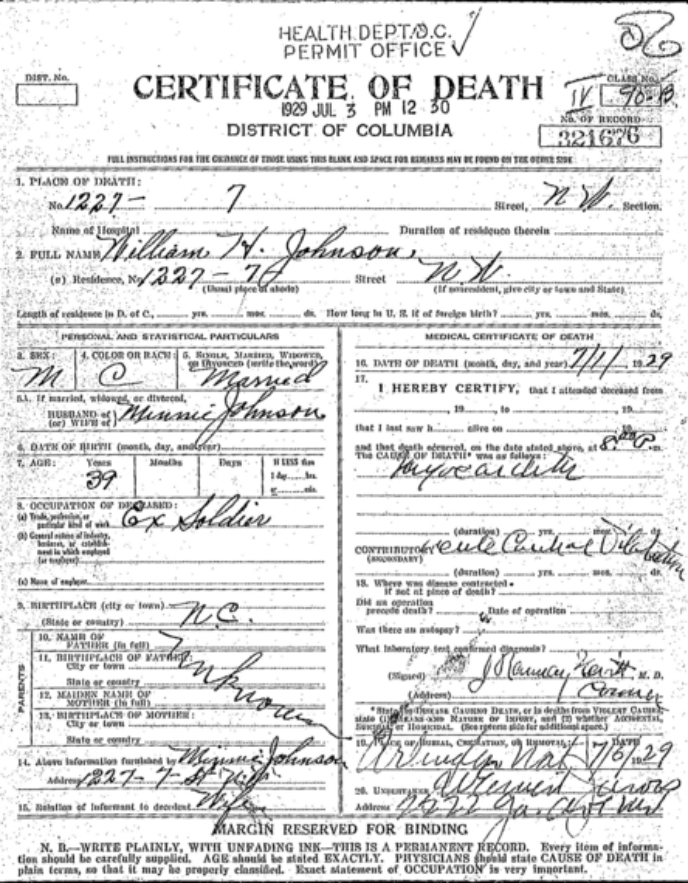 HEALTH DEPT. D.C.
PERMIT OFFICE
DIST. No.
CERTIFICATE OF DEATH
CLASS No.
IV 90-B
1929 JUL 3 PM 12 30
No. OF RECORD
321676
DISTRICT OF COLUMBIA
FULL INSTRUCTIONS FOR THE GUIDANCE OF THOSE USING THIS BLANK AND SPACE FOR REMARKS MAY BE FOUND ON THE OTHER SIDE
1. PLACE OF DEATH:
No. 1227- 7 Street, N W. Section.
Name of Hospital Duration of residence therein
2. FULL NAME William H. Johnson.
(a) Residence, No. 1227-7 Street N.W.
(Usual place of abode) (If nonresident, give city or town and State)
Length of residence in D. of C., yrs. mos. ds. How long in U. S. if of foreign birth? yrs. mos. ds.
PERSONAL AND STATISTICAL PARTICULARS
3. SEX: 4. COLOR OR RACE: 5. SINGLE, MARRIED, WIDOWED, OR DIVORCED (write the word)
M C Married
5A. If married, widowed, or divorced,
HUSBAND of
(or) WIFE of Minnie Johnson
6. DATE OF BIRTH (month, day, and year)
7. AGE: Years Months Days If LESS than
1 day, hrs.
or min.
39
8. OCCUPATION OF DECEASED:
(a) Trade, profession, or
particular kind of work Ex Soldier
(b) General nature of industry,
business, or establish-
ment in which employed
(or employer)
(c) Name of employer
9. BIRTHPLACE (city or town)
(State or country) N.C.
PARENTS
10. NAME OF
FATHER (in full)
11. BIRTHPLACE OF FATHER:
City or town
State or country
Unknown
12. MAIDEN NAME OF
MOTHER (in full)
13. BIRTHPLACE OF MOTHER:
City or town
State or country
14. Above information furnished by Minnie Johnson
Address 1227-7 St N.W.
15. Relation of informant to decedent Wife
MEDICAL CERTIFICATE OF DEATH
16. DATE OF DEATH (month, day, and year) 7/1/ 1929
17.
I HEREBY CERTIFY, that I attended deceased from
, 19 , to , 19
that I last saw h alive on , 19
and that death occurred, on the date stated above, at 8 P. m.
The CAUSE OF DEATH* was as follows:
Myocarditis
(duration) yrs. mos. ds.
CONTRIBUTORY Acute Cardiac Dilatation
(SECONDARY)
(duration) yrs. mos. ds.
18. Where was disease contracted
if not at place of death?
Did an operation
precede death? Date of operation
Was there an autopsy?
What laboratory test confirmed diagnosis?
(Signed) J Ramsay Nevitt M. D.
(Address) Coroner
*State the DISEASE CAUSING DEATH, or in deaths from VIOLENT CAUSES,
state (1) MEANS AND NATURE OF INJURY, and (2) whether ACCIDENTAL,
SUICIDAL or HOMICIDAL. (See reverse side for additional space.)
19. PLACE OF BURIAL, CREMATION, OR REMOVAL: DATE
7/6/ 1929
20. UNDERTAKER
Address
MARGIN RESERVED FOR BINDING
N. B.—WRITE PLAINLY, WITH UNFADING INK—THIS IS A PERMANENT RECORD. Every item of informa-
tion should be carefully supplied. AGE should be stated EXACTLY. PHYSICIANS should state CAUSE OF DEATH in
plain terms, so that it may be properly classified. Exact statement of OCCUPATION is very important.